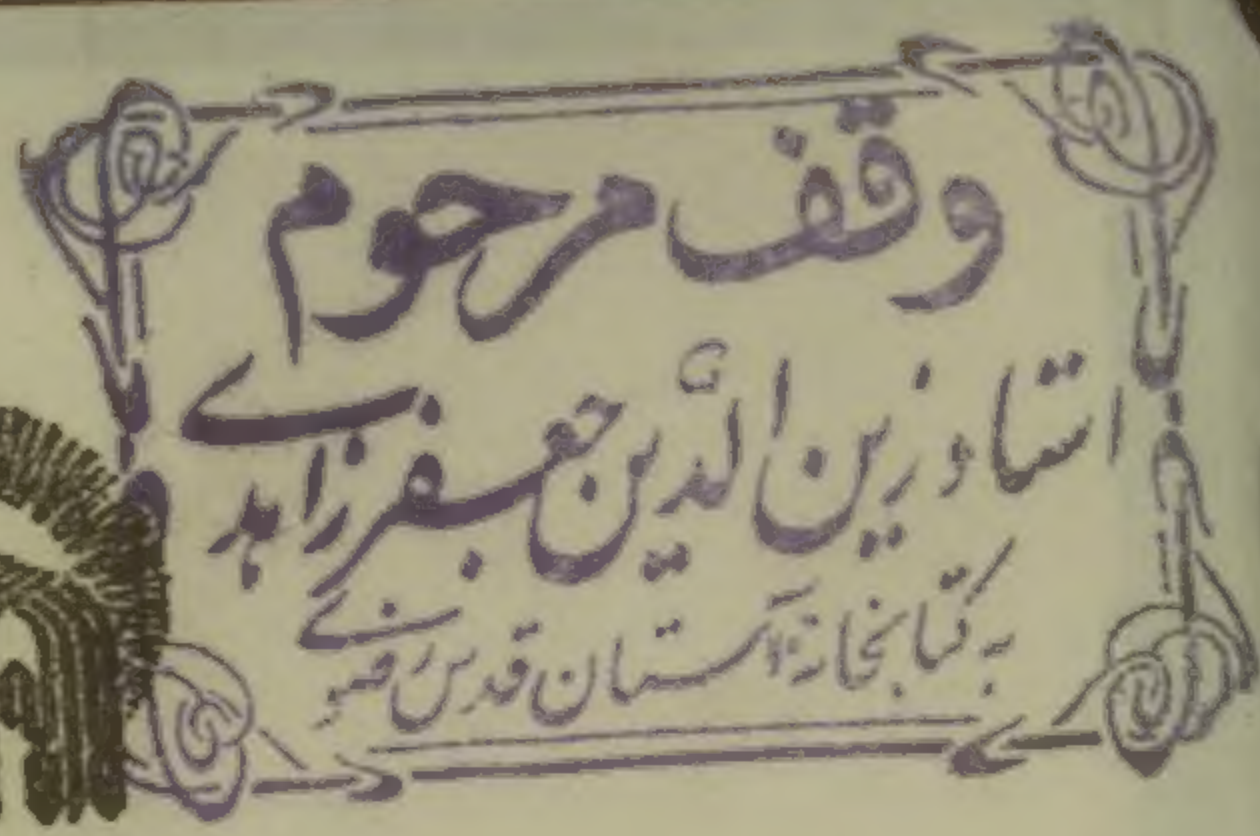 وقف مرحوم
استاد زین الدّین جعفر زاهدی
به کتابخانهٔ آستان قدس رضوی